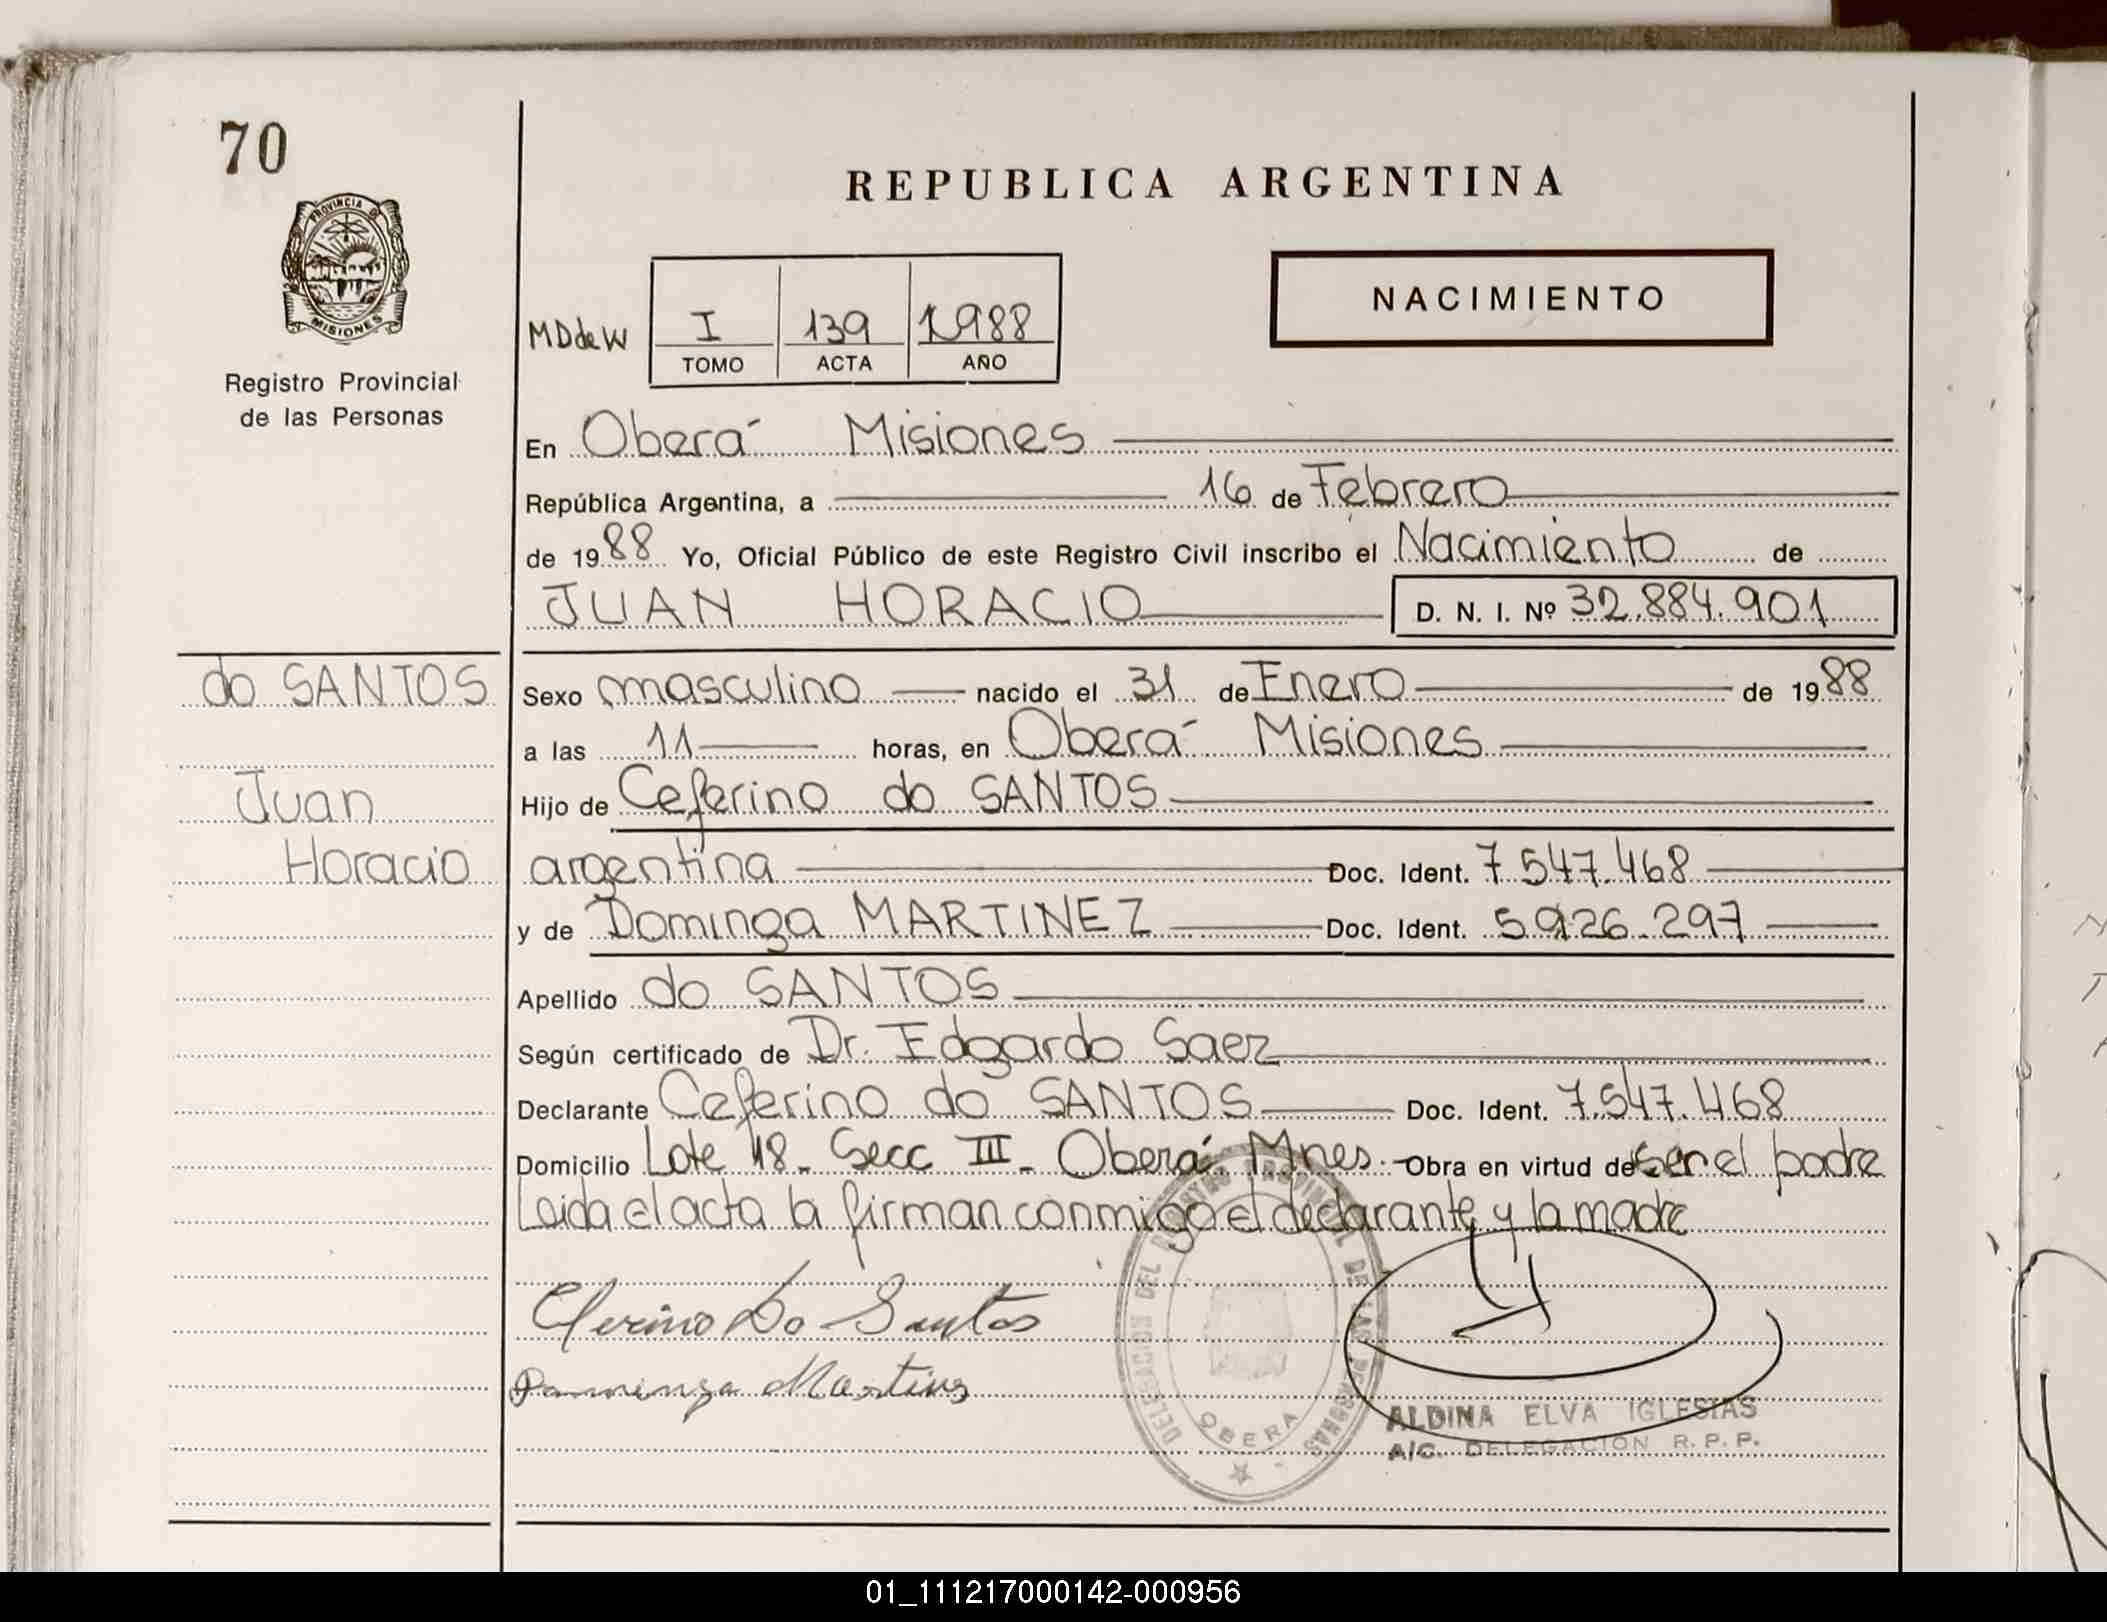 70
REPUBLICA ARGENTINA
PROVINCIA DE
MISIONES
Registro Provincial
de las Personas
NACIMIENTO
MDdeW I 139 1988
TOMO ACTA AÑO
En Oberá Misiones
República Argentina, a 16 de Febrero
de 1988 Yo, Oficial Público de este Registro Civil inscribo el Nacimiento de
JUAN HORACIO D. N. I. Nº 32.884.901
do SANTOS
Juan
Horacio
Sexo masculino nacido el 31 de Enero de 1988
a las 11 horas, en Oberá Misiones
Hijo de Ceferino do SANTOS
argentina Doc. Ident. 7.547.468
y de Dominga MARTINEZ Doc. Ident. 5.926.297
Apellido do SANTOS
Según certificado de Dr. Edgardo Saez
Declarante Ceferino do SANTOS Doc. Ident. 7.547.468
Domicilio Lote 48- Secc III- Oberá Mnes. Obra en virtud de ser el padre
Leida el acta la firman conmigo el declarante y la madre
Do Santos
DELEGACION DEL REGISTRO PROVINCIAL DE LAS PERSONAS
OBERA
ALDINA ELVA IGLESIAS
A/C. DELEGACION R. P. P.
01_111217000142-000956